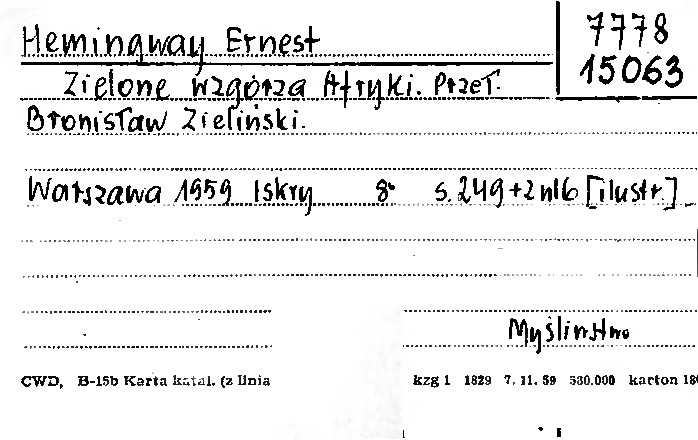 Hemingway Ernest
7778
15063
Zielone wzgórza Afryki. Przeł.
Bronisław Zieliński.
Warszawa 1959 Iskry 8° s. 249+2 nlb [ilustr.]
Myślistwo
CWD, B-15b Karta katal. (z linia
kzg 1 1829 7. 11. 59 530.000 karton 180